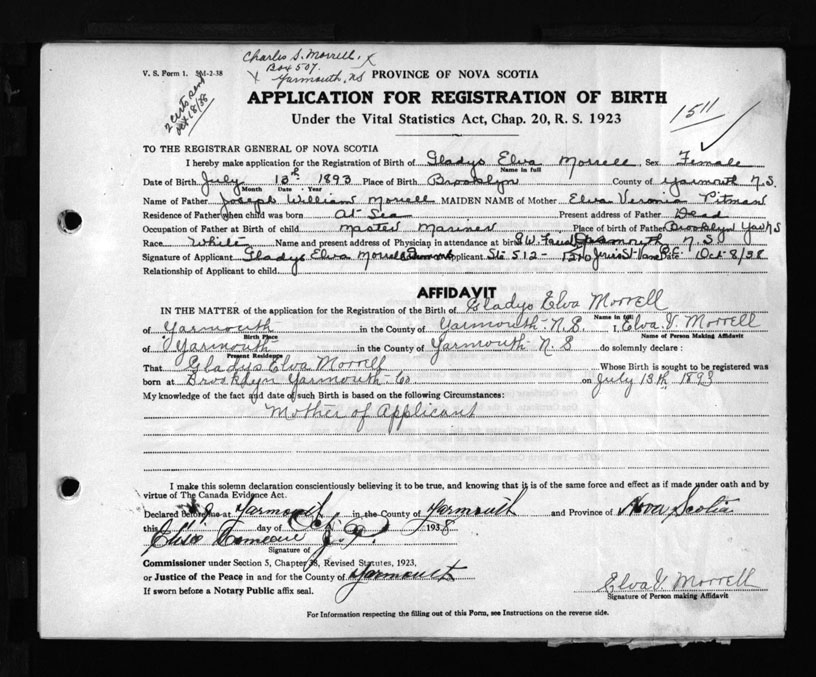 Charles S. Morrell, X
Box 507.
X Yarmouth, NS
V. S. Form 1. 5M-2-38
2 certs sent
Oct 18/38
PROVINCE OF NOVA SCOTIA
APPLICATION FOR REGISTRATION OF BIRTH
Under the Vital Statistics Act, Chap. 20, R. S. 1923
1511
TO THE REGISTRAR GENERAL OF NOVA SCOTIA
I hereby make application for the Registration of Birth of Gladys Elva Morrell Sex Female
Name in full
Date of Birth July 13th 1893 Place of Birth Brooklyn County of Yarmouth N.S.
Month Date Year
Name of Father Joseph William Morrell MAIDEN NAME of Mother Elva Veronia Pitman
Residence of Father when child was born At Sea Present address of Father Dead
Occupation of Father at Birth of child Master Mariner Place of birth of Father Brooklyn Yar NS
Race White Name and present address of Physician in attendance at birth G.W. Yarmouth N.S.
Signature of Applicant Gladys Elva Morrell Applicant Ste 512- St Vanc B.C. Date Oct 8/38
Relationship of Applicant to child
AFFIDAVIT
IN THE MATTER of the application for the Registration of the Birth of Gladys Elva Morrell
Name in full
of Yarmouth in the County of Yarmouth N.S. I, Elva V. Morrell
Birth Place Name of Person Making Affidavit
of Yarmouth in the County of Yarmouth N.S do solemnly declare :
Present Residence
That Gladys Elva Morrell Whose Birth is sought to be registered was
born at Brooklyn Yarmouth Co on July 13th 1893
My knowledge of the fact and date of such Birth is based on the following Circumstances:
Mother of Applicant
I make this solemn declaration conscientiously believing it to be true, and knowing that it is of the same force and effect as if made under oath and by
virtue of The Canada Evidence Act.
Declared Before me at Yarmouth in the County of Yarmouth and Province of Nova Scotia
this 8 day of Oct 1938
Elisé Comeau J.P.
Signature of
Commissioner under Section 5, Chapter 38, Revised Statutes, 1923,
or Justice of the Peace in and for the County of Yarmouth
If sworn before a Notary Public affix seal.
Elva V. Morrell
Signature of Person making Affidavit
For Information respecting the filling out of this Form, see Instructions on the reverse side.